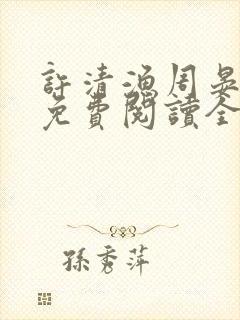 許清渔周晏
免費閱讀全
孫秀萍